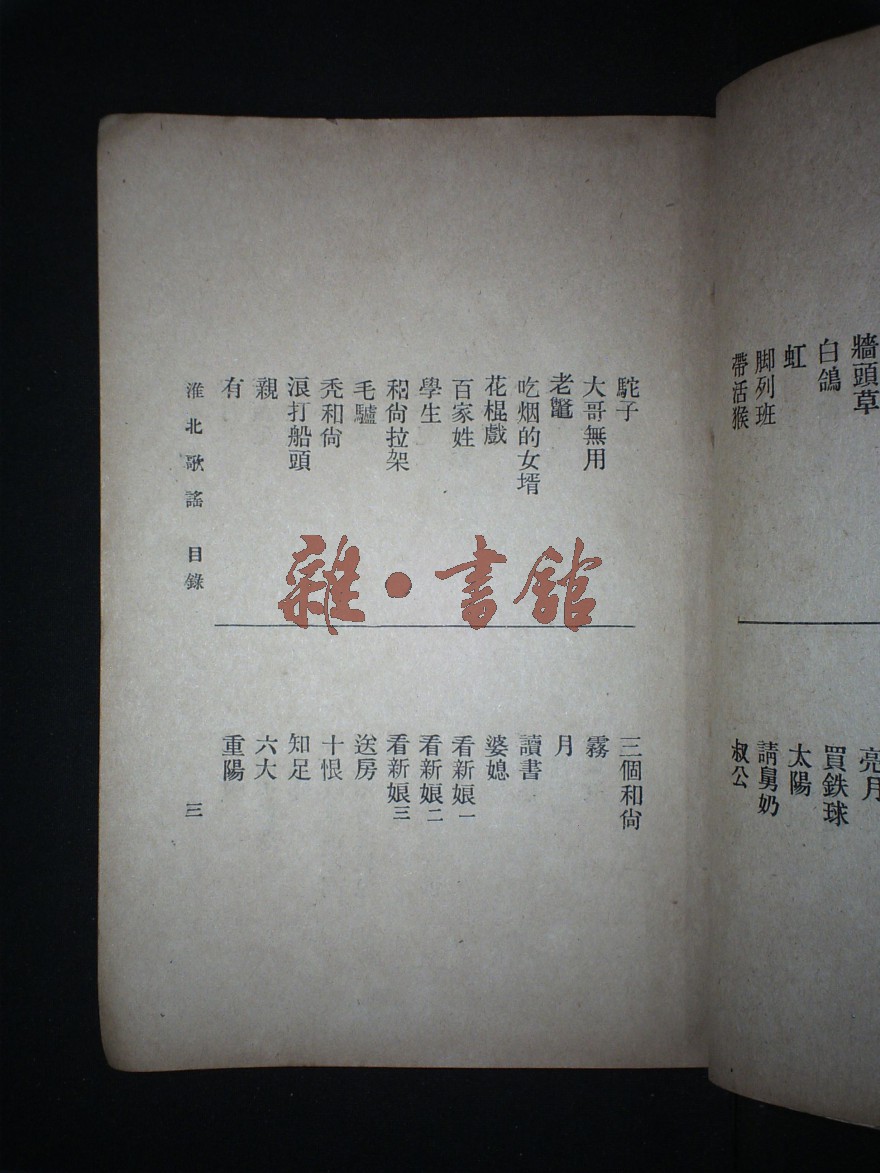 牆頭草
白鴿
虹
脚列班
帶活猴
亮月
買鉄球
太陽
請舅奶
叔公
駝子
大哥無用
老鼈
吃烟的女壻
花棍戲
百家姓
學生
和尙拉架
毛驢
秃和尙
浪打船頭
親
有
三個和尙
霧
月
讀書
婆媳
看新娘一
看新娘二
看新娘三
送房
十恨
知足
六大
重陽
淮北歌謠 目錄
三
雜·書舘